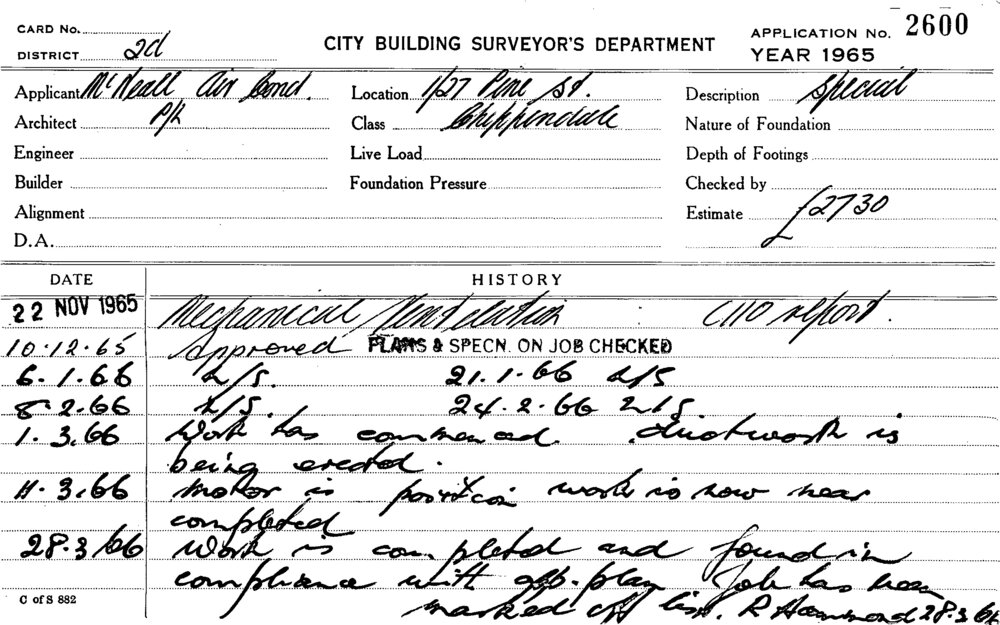 CARD No. APPLICATION No. 2600
DISTRICT 2d CITY BUILDING SURVEYOR'S DEPARTMENT YEAR 1965
Applicant McNeall Air Cond. Location 1/27 Pine St. Description Special
Architect P/R Class Chippendale Nature of Foundation
Engineer Live Load Depth of Footings
Builder Foundation Pressure Checked by
Alignment Estimate £2730
D.A.
DATE HISTORY
22 NOV 1965 Mechanical Ventilation CHO report.
10.12.65 Approved PLANS & SPECN. ON JOB CHECKED
6.1.66 N/S. 21.1.66 N/S
8.2.66 N/S. 24.2.66 N/S.
1.3.66 Work has commenced. ductwork is
being erected.
11.3.66 motor in position work is now near
completed
28.3.66 Work is completed and found in
compliance with app. plan Job has been
C of S 882 marked off list. R Hammond 28.3.66